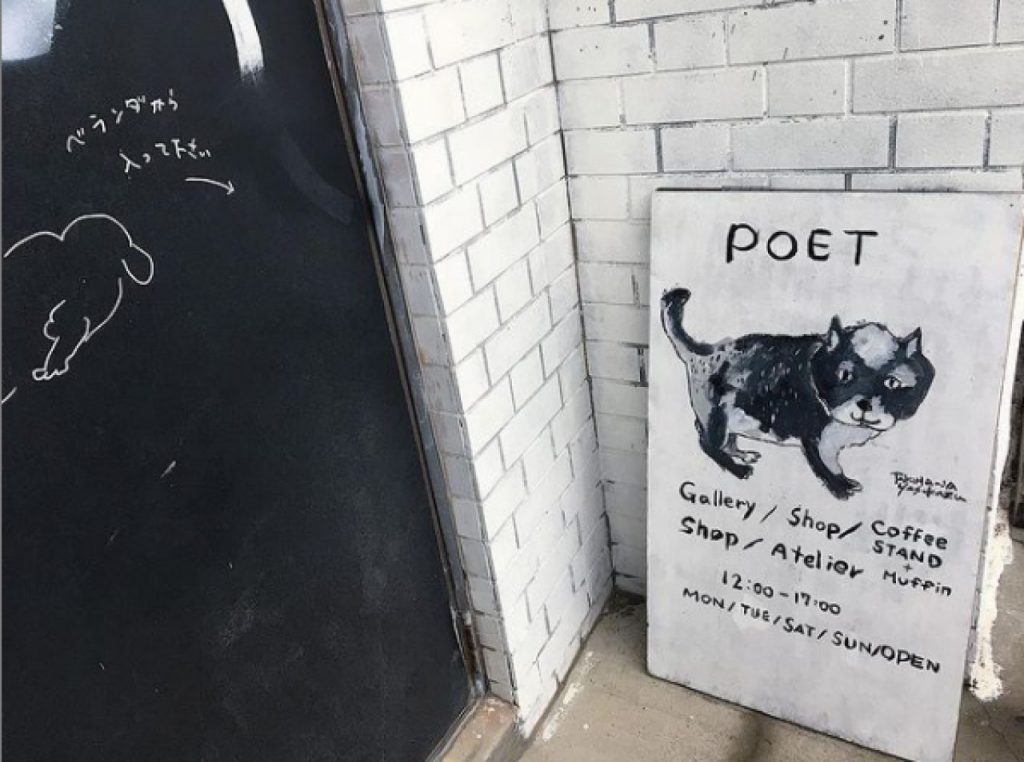 ベランダから
入って下さい
POET
Gallery / Shop / Coffee STAND
Shop / Atelier + Muffin
12:00 - 17:00
MON / TUE / SAT / SUN / OPEN